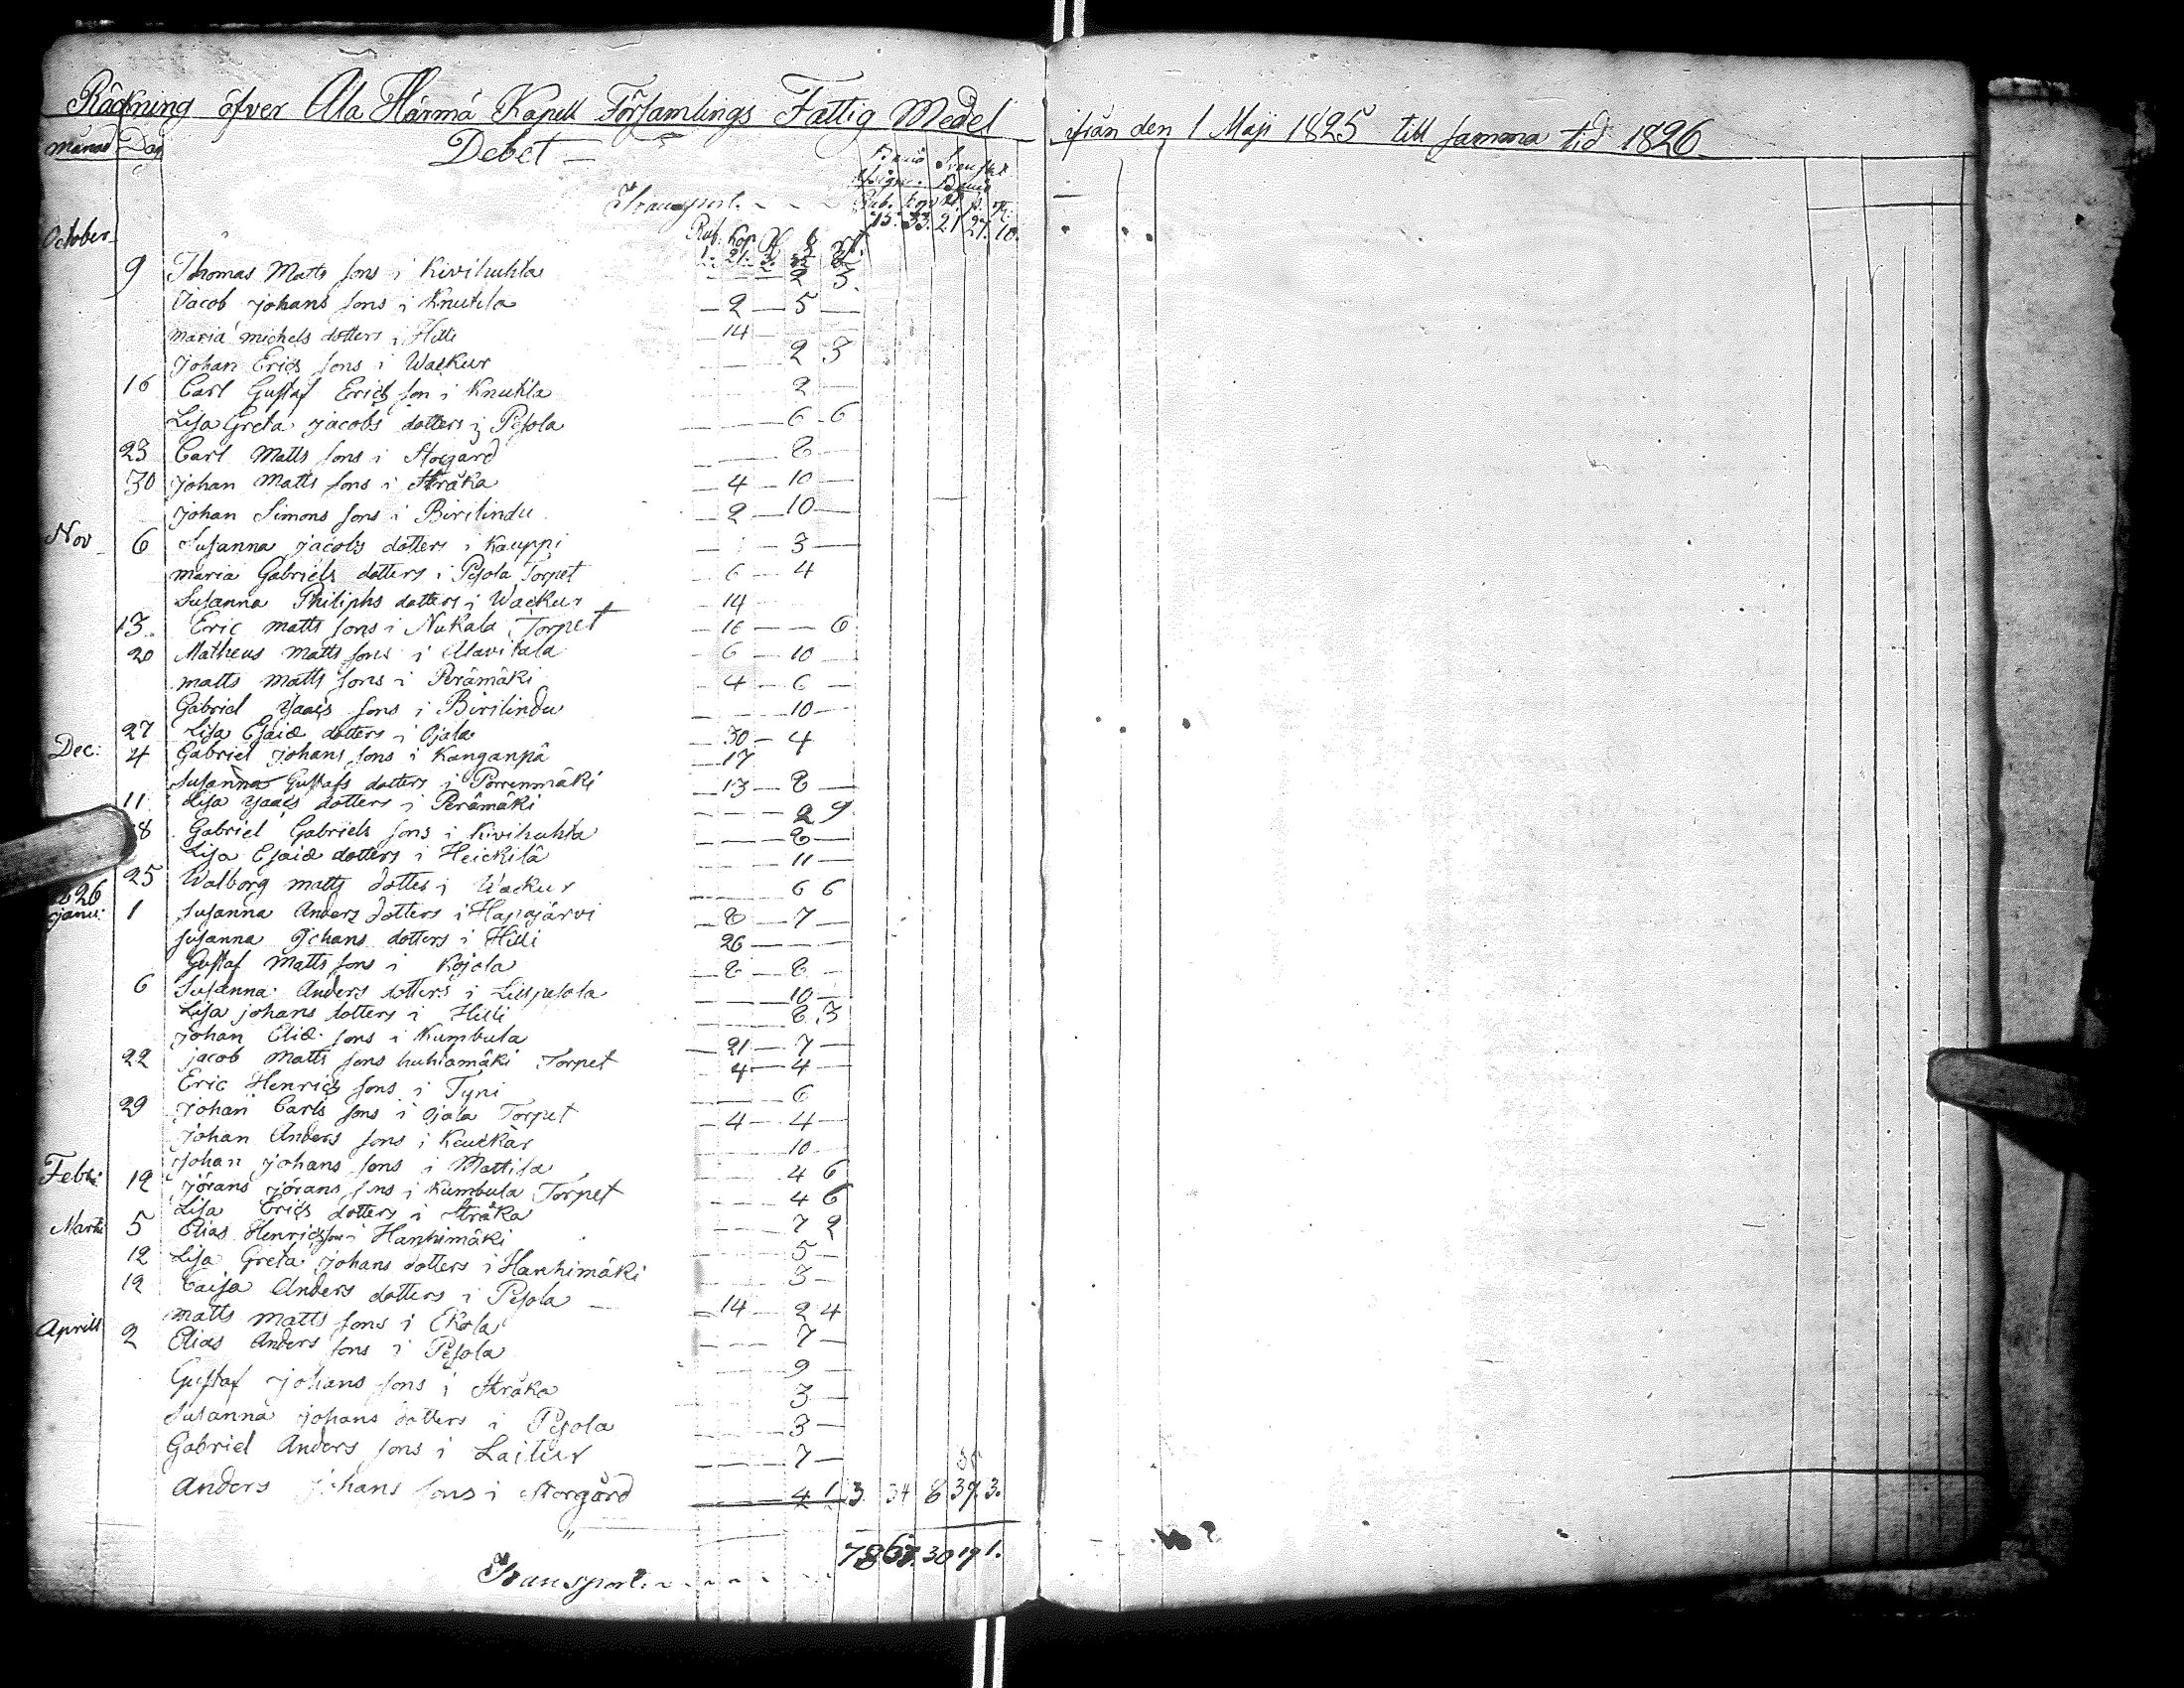 Räckning öfver Ala Härmä Kapell Församlings Fattig Medel ifrån den 1 Maji 1825 till samma tid 1826
Månad Dag Debet
Banco Svenska
Assign. Banco
Transport. Rub. Kop. R. s. r.
October 15. 33. 21 27. 10.
Rub. Kop R s r.
1. 21. 3.
9 Thomas Matts sons i Kivihuhta 2 3.
Jacob Johans sons i Knutila 2 5
maria michels dotters i Hilli 14
Johan Erics sons i Wackur 2 3
16 Carl Gustaf Erics son i Knuktla 2
Lisa Greta Jacobs dotters i Pesola 6 6
23 Carl Matts sons i Storgard 8
30 Johan Matts sons i Stråka 4 10
Johan Simons sons i Birilindu 2 10
Nov 6 Susanna Jacobs dotters i Kauppi 3
maria Gabriels dotters i Pesola Torpet 6 4
Susanna Philiphs dotters i Wackur 14
13. Eric matts sons i Nukala Torpet 16 6
20 Matheus matts sons i Alavitala 6 10
matts matts sons i Perämäki 4 6
Gabriel Isaacs sons i Birilindu 10
27 Lisa Esaiæ dotters i Ojala 30 4
Dec: 4 Gabriel Johans sons i Kanganpä 17
Susanna Gustafs dotters i Porrenmäki 13 8
11 Lisa Isaacs dotters i Perämäki 2 9
18 Gabriel Gabriels sons i Kivihuhta 8
Lisa Esaiæ dotters i Heickilä 11
25 Walborg matts dotter i Wackur 6 6
1826
Janu: 1 Susanna Anders dotters i Hapajärvi 8 7
Susanna Johans dotters i Hilli 26
Gustaf Matts sons i Kojola 8 8
6 Susanna Anders dotters i Lillpesola 10
Lisa johans dotters i Hilli 8 3
Johan Eliæ sons i Kumbula 21 7
22 jacob Matts sons huhtamäki Torpet 4 4
Eric Henrics sons i Tyni 6
29 Johan Carls sons i Ojala Torpet 4 4
Johan Anders sons i Kauckår 10
Johan Johans sons i Mattila 4 6
Feb: 12 Jörans Jörans sns i Kumbula Torpet 4 6
Lisa Erics dotters i Stråka 7 2
Marti 5 Elias Henricssons i Hanhimäki 5
12 Lisa Greta Johans dotters i Hanhimäki 3
19 Caisa Anders dotters i Pesola 14 2 4
matts matts sons i Ekola 7
Aprill 2 Elias Anders sons i Pesola 9
Gustaf Johans sons i Stråka 3
Susanna Johans dotters i Pesola 3
Gabriel Anders sons i Laitur 7
Anders Johans sons i Storgård 4 1 3. 34 8 39. 3.
Transport. 78 67. 30 19 1.